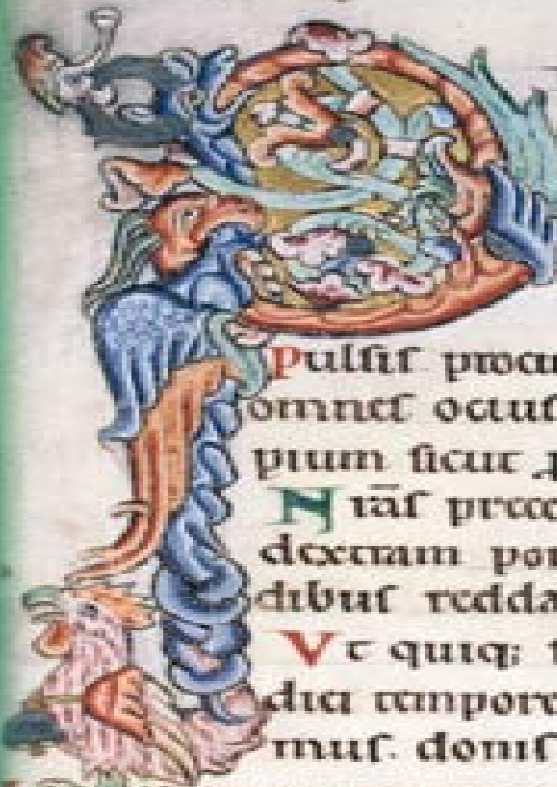 P
Pulſiſ procu
omneſ ociuſ
pium ſicut p
Nrāſ prece
dextram por
dibuſ redda
Vt quiq;
diei tempore
muſ. doniſ